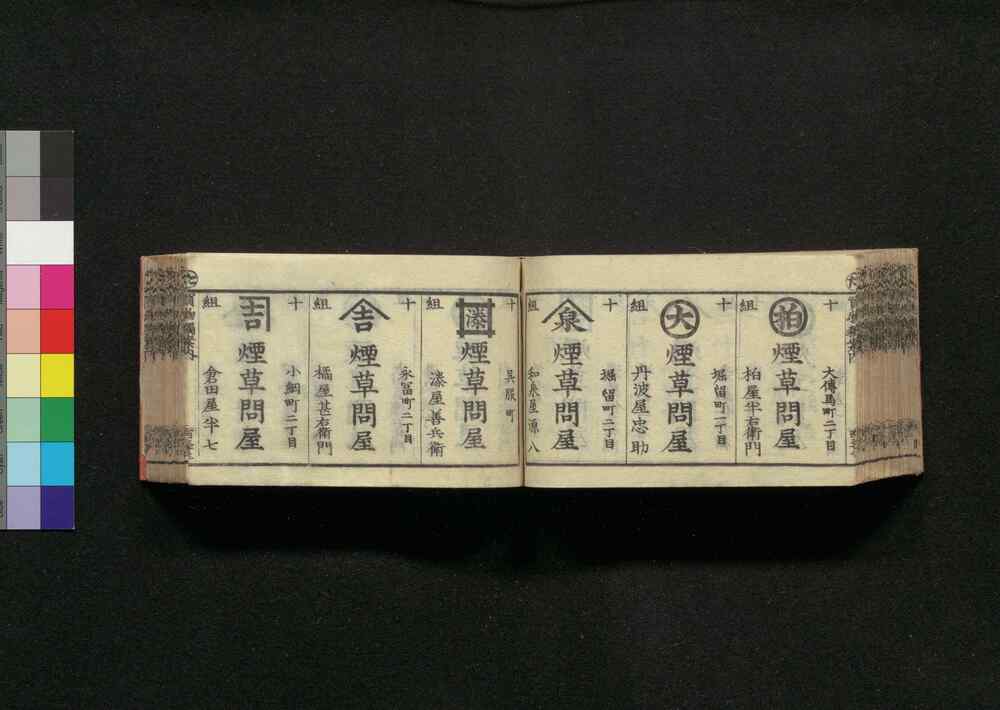 十
組
大傳馬町二丁目
柏
煙草問屋
柏屋半右衛門
十
組
堀留町二丁目
大
煙草問屋
丹波屋忠助
十
組
堀留町二丁目
泉
煙草問屋
和泉屋源八
十
組
呉服町
漆
煙草問屋
漆屋善兵衛
十
組
永冨町二丁目
吉
煙草問屋
橘屋甚右衛門
十
組
小網町二丁目
吉
煙草問屋
倉田屋半七